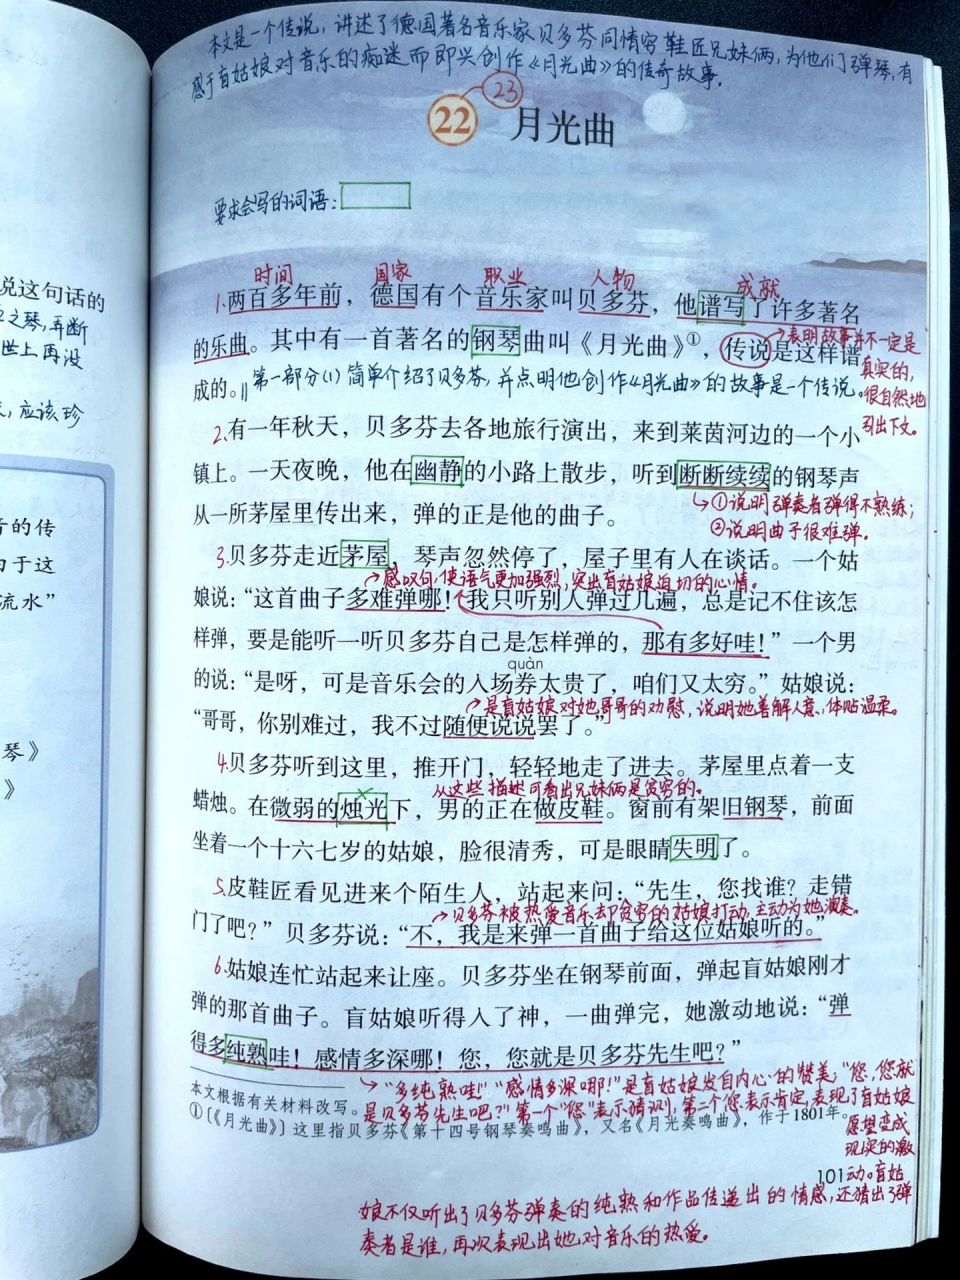 本文是一个传说，讲述了德国著名音乐家贝多芬同情穷鞋匠兄妹俩，为他们弹琴，有
感于盲姑娘对音乐的痴迷而即兴创作《月光曲》的传奇故事。
23
22 月光曲
要求会写的词语：
时间 国家 职业 人物 成就
1.两百多年前，德国有个音乐家叫贝多芬，他谱写了许多著名
的乐曲。其中有一首著名的钢琴曲叫《月光曲》①，传说是这样谱
成的。
→表明故事并不一定是
真实的，
很自然地
引出下文。
第一部分(1)简单介绍了贝多芬，并点明他创作《月光曲》的故事是一个传说。
2.有一年秋天，贝多芬去各地旅行演出，来到莱茵河边的一个小
镇上。一天夜晚，他在幽静的小路上散步，听到断断续续的钢琴声
从一所茅屋里传出来，弹的正是他的曲子。
→①说明弹奏者弹得不熟练；
②说明曲子很难弹。
3.贝多芬走近茅屋，琴声忽然停了，屋子里有人在谈话。一个姑
→感叹句，使语气更加强烈，突出盲姑娘迫切的心情。
娘说：“这首曲子多难弹哪！我只听别人弹过几遍，总是记不住该怎
样弹，要是能听一听贝多芬自己是怎样弹的，那有多好哇！”一个男
quàn
的说：“是呀，可是音乐会的入场券太贵了，咱们又太穷。”姑娘说：
→是盲姑娘对她哥哥的劝慰，说明她善解人意，体贴温柔。
“哥哥，你别难过，我不过随便说说罢了。”
4.贝多芬听到这里，推开门，轻轻地走了进去。茅屋里点着一支
从这些描述可看出兄妹俩是贫穷的。
蜡烛。在微弱的烛光下，男的正在做皮鞋。窗前有架旧钢琴，前面
坐着一个十六七岁的姑娘，脸很清秀，可是眼睛失明了。
5.皮鞋匠看见进来个陌生人，站起来问：“先生，您找谁？走错
→贝多芬被热爱音乐却贫穷的姑娘打动，主动为她演奏。
门了吧？”贝多芬说：“不，我是来弹一首曲子给这位姑娘听的。”
6.姑娘连忙站起来让座。贝多芬坐在钢琴前面，弹起盲姑娘刚才
弹的那首曲子。盲姑娘听得入了神，一曲弹完，她激动地说：“弹
得多纯熟哇！感情多深哪！您，您就是贝多芬先生吧？”
→“多纯熟哇！”“感情多深哪！”是盲姑娘发自内心的赞美；“您，您就
是贝多芬先生吧？”第一个“您”表示猜测，第二个“您”表示肯定，表现了盲姑娘
愿望变成
现实的激
动。盲姑
娘不仅听出了贝多芬弹奏的纯熟和作品传递出的情感，还猜出了弹
奏者是谁，再次表现出她对音乐的热爱。
本文根据有关材料改写。
①〔《月光曲》〕这里指贝多芬《第十四号钢琴奏鸣曲》，又名《月光奏鸣曲》，作于1801年。
101
说这句话的
之琴，再断
世上再没
应该珍
的传
由于这
流水”
琴》
》